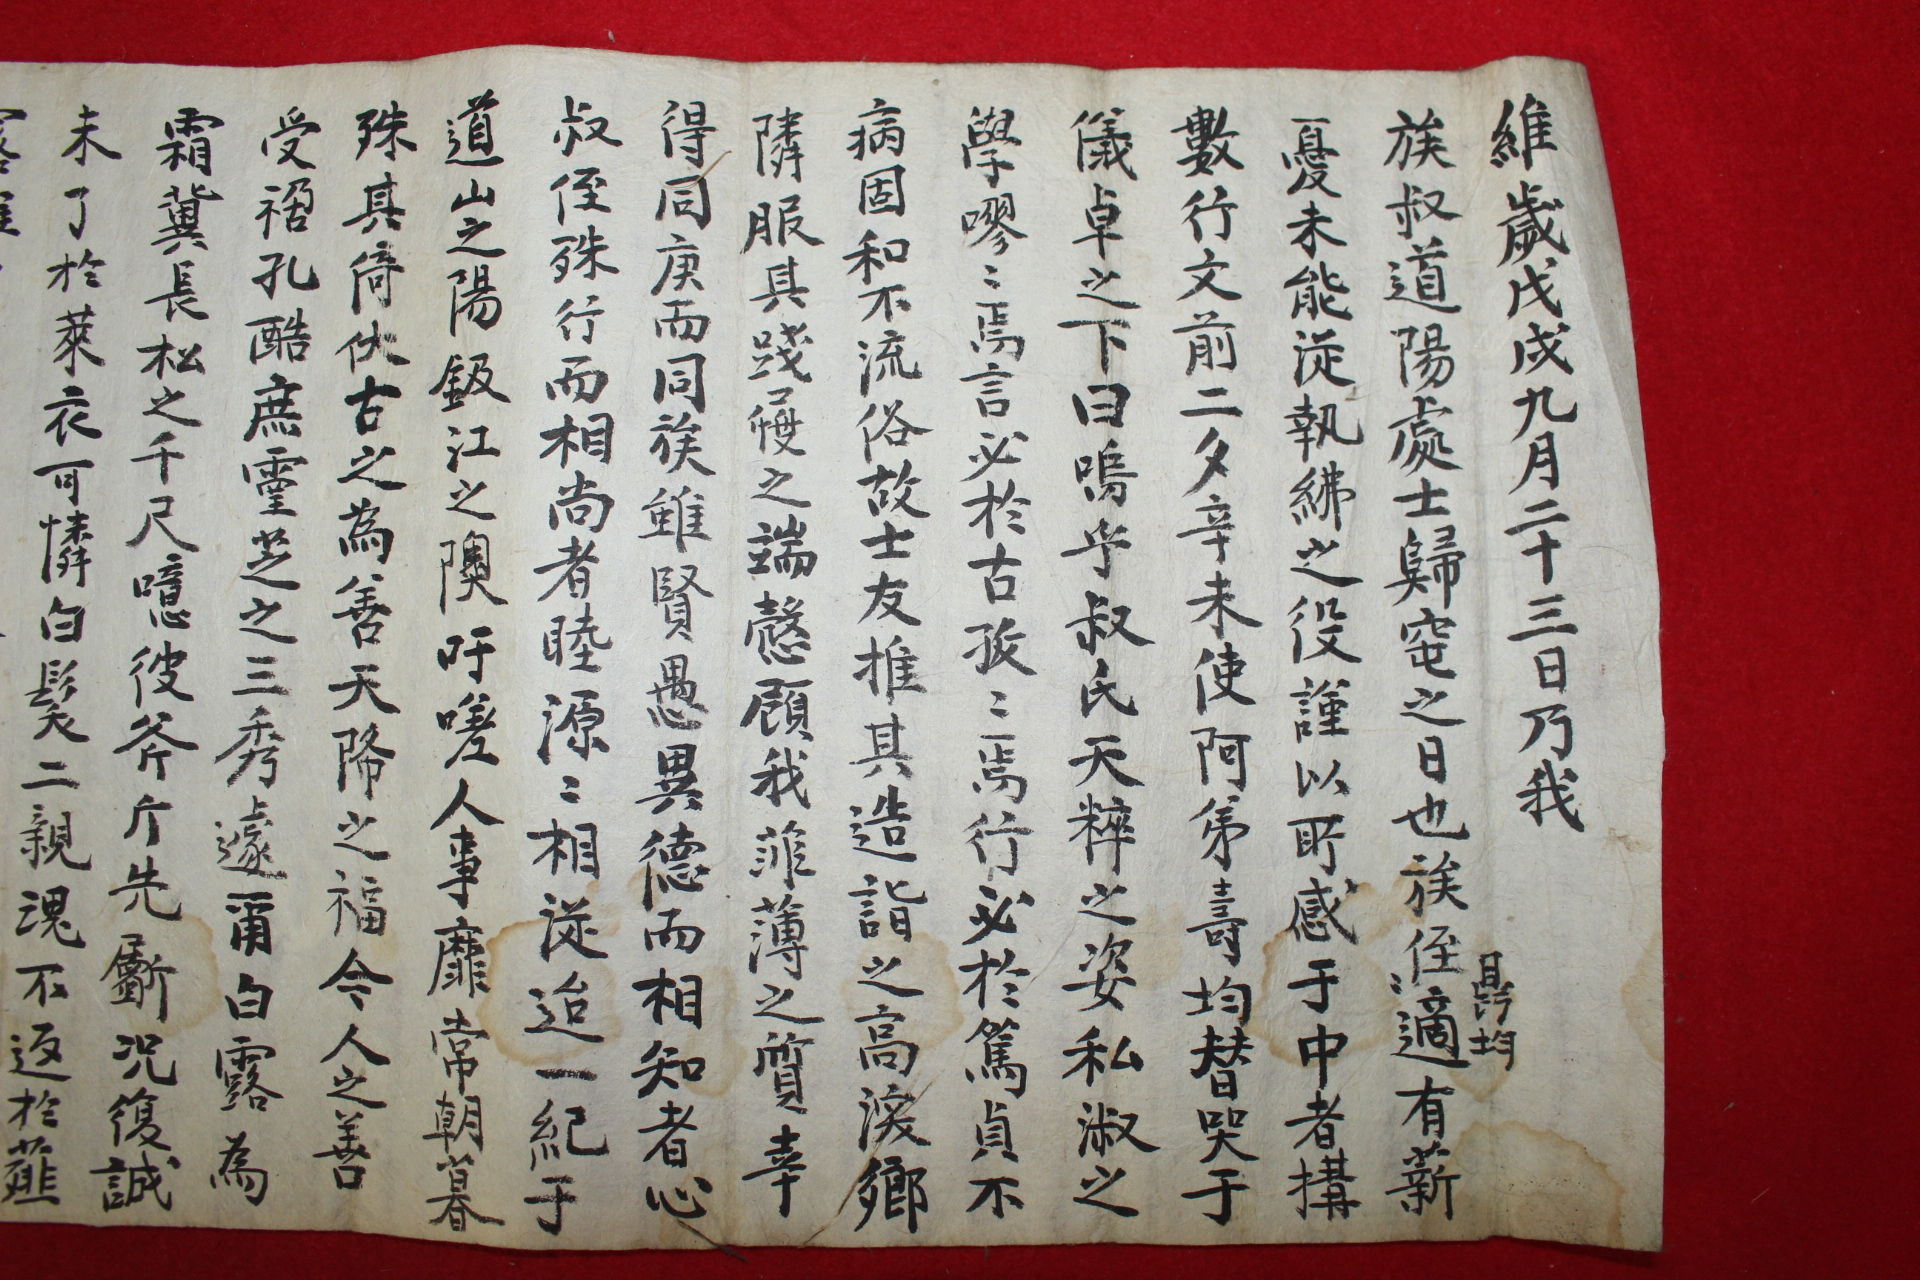 維歲戊戌九月二十三日乃我
族叔道陽處士歸窀之日也族侄昷均適有薪
憂未能從執紼之役謹以所感于中者搆
數行文前二夕辛未使阿弟壽均替哭于
儀卓之下曰嗚乎叔氏天粹之姿私淑之
學嘐〻焉言必於古孜〻焉行必於篤貞不
病固和不流俗故士友推其造詣之高淚鄉
隣服其踐履之端慤顧我菲薄之質幸
得同庚而同族雖賢愚異德而相知者心
叔侄殊行而相尚者睦源〻相從迨一紀于
道山之陽鈒江之隩吁嗟人事靡常朝暮
殊其倚伏古之為善天降之福今人之善
受禍孔酷庶霊芝之三秀遽甫白露為
霜冀長松之千尺噫彼斧斤先斸況復誠
未了於萊衣可憐白髮二親魂不返於薤